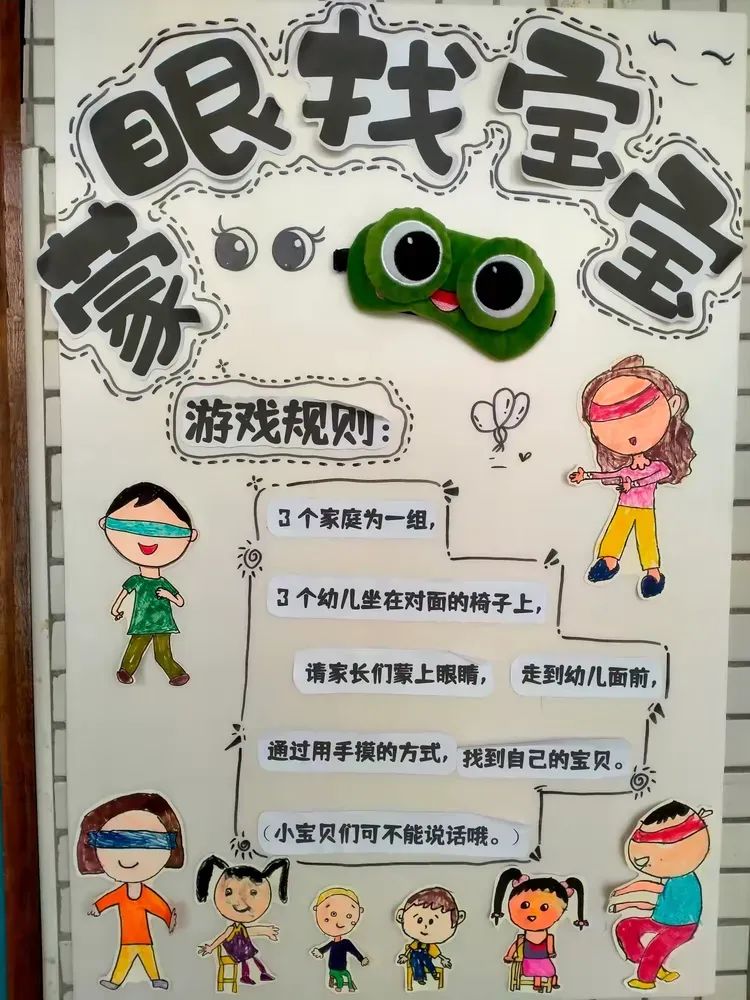 蒙眼找宝宝
游戏规则:
3个家庭为一组,
3个幼儿坐在对面的椅子上,
请家长们蒙上眼睛, 走到幼儿面前,
通过用手摸的方式, 找到自己的宝贝。
(小宝贝们可不能说话哦。)